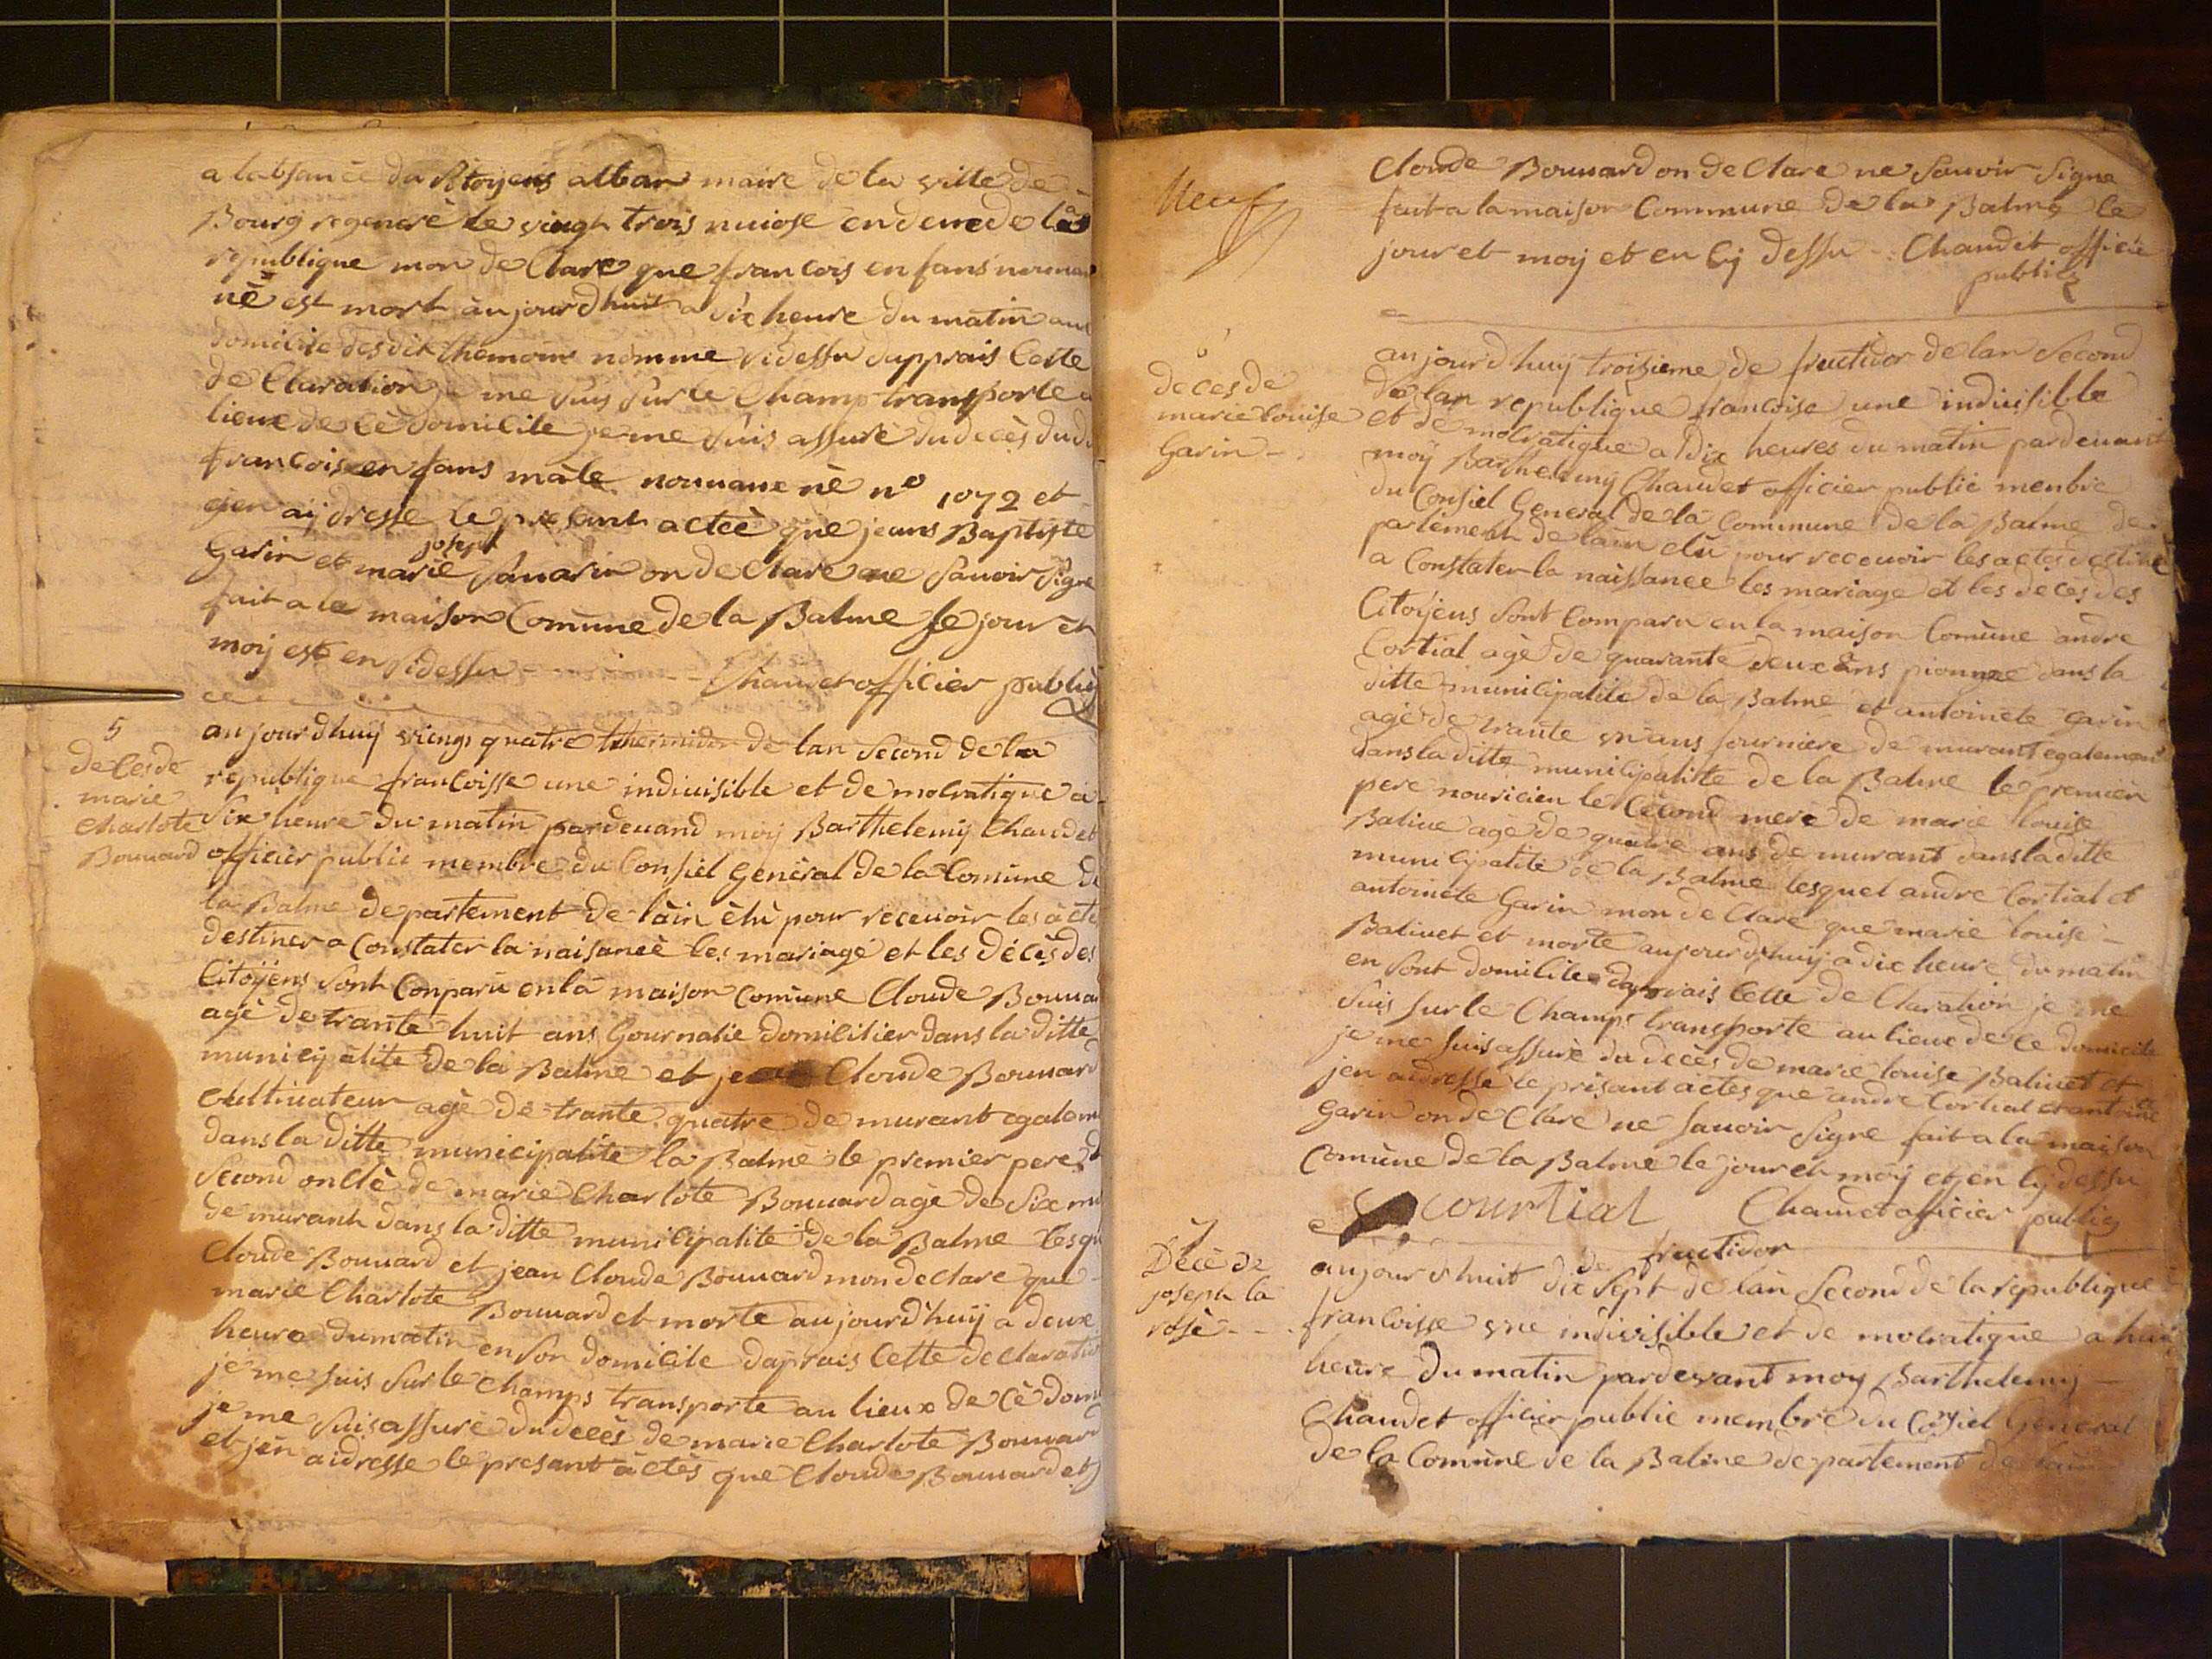 a labsance du Sitoyens alban maire de la ville de
Bourg regeneré le vingt trois nuiose en deuxe de la
republique mon de Clare que francois en fans nouuau
né est mort aujourdhuit a six heure du matin au
domicile desdit themoins nomme sidessu dapprais Cette
de Claration je me suis sur le Champ transporte a
lieux de ce domicile je me suis assuré du deces dud
francois en fans mâle nouuaux né n° 1072 et
jen aij dresse le presant acteè que jeans Baptiste
joseph
Garin et marie Sauarin on de Clare ne sauoir signe
fait a la maison Comune de la Balme le jour et
moij est en sidessu Chaudet officier publiq
5
deces de
marie
Charlote
Bouuard
aujourdhuij viengt quatre thermidor de lan second de la
republique francoisse une indiuisible et de molratique a
six heure du matin par deuand moij Barthelemij Chaudet
officier public membre du Consiel General de la Comune de
la Balme departement de lain élu pour receuoir les acte
destiner a Constater la naisanceè les mariage et les décès des
Citoÿens sont Conparu en la maison Comune Cloude Bouua
agé de trante huit ans Gournalie domicilier dans la ditte
municipalite de la Balme et jean Cloude Bouuard
Cultiuateur agé de trante quatre de murant egalem
dans la ditte municipalite la Balme le premier pere d
second onclè de marie Charlote Bouuard agé de six m
de murant dans la ditte municipalite de la Balme lesqu
Cloude Bouuard et jean Cloude Bouuard mon declare que
marie Charlote Bouuard et morte aujourdhuij a deux
heure dumatin en son domicile daprais Cette declaratio
je me suis sur le Champs transporte au lieux de cè dom
je me suis assuré du decès de marie Charlote Bouuard
et jen aidresse le presant actès que Cloude Bouuard et
Neuf
Cloude Bouuard on de Clare ne sauoir signe
fait a la maison Commune de la Balme le
jour et moij et en Cij dessu Chaudet officie
publiq
6
deces de
marie louise
Garin
aujourdhuij troisieme de fructidor de lan second
de lan republique francoise une indiuisible
et de molratique a dix heures du matin pardeuant
moÿ Barthelemij Chaudet officier public menbre
du Consiel General de la Commune de la Balme de
partement de lain elu pour receuoir les actes destine
a Constater la naissance les mariage et les décès des
Citoÿens sont Comparu en la maison Comune andre
Cortial agé de quarante deux ans pionnee dans la
ditte municipalite de la Balme et antoinete Garin
agé de trante un ans journiere de murant egalemen
dans la ditte municipalitte de la Balme le premier
pere nouricien le Cecond mere de marie louise
Baliue agé de quatre ans de murant dans laditte
municipalité de la Balme lesquel andre Cortial et
antoinete Garin mon de Clare que marie louise
Baliuet et morte aujourdhuij a dix heure du matin
en sont domicile daprais Cette de Claration je me
suis sur le Champs transporte au lieux de Ce domicile
je me suis assuré du decès de marie louise Baliuet et
jen aidresse le prisant actes que andre Cortial et antoine
Garin on de Clare ne sauoir signe fait a la maison
Comune de la Balme le jour et moÿ et en Cij dessu
Courtial Chaudet oficier publiq
7
Décè de
joseph la
rosè
de fructidor
aujourdhuit dix sept de lan second de la republique
francoisse une indivisible et de molratique a hui
heure du matin pardevant moy Barthelemij
Chaudet officier public membre du Consiel General
de la Comune de la Balme departement de lain